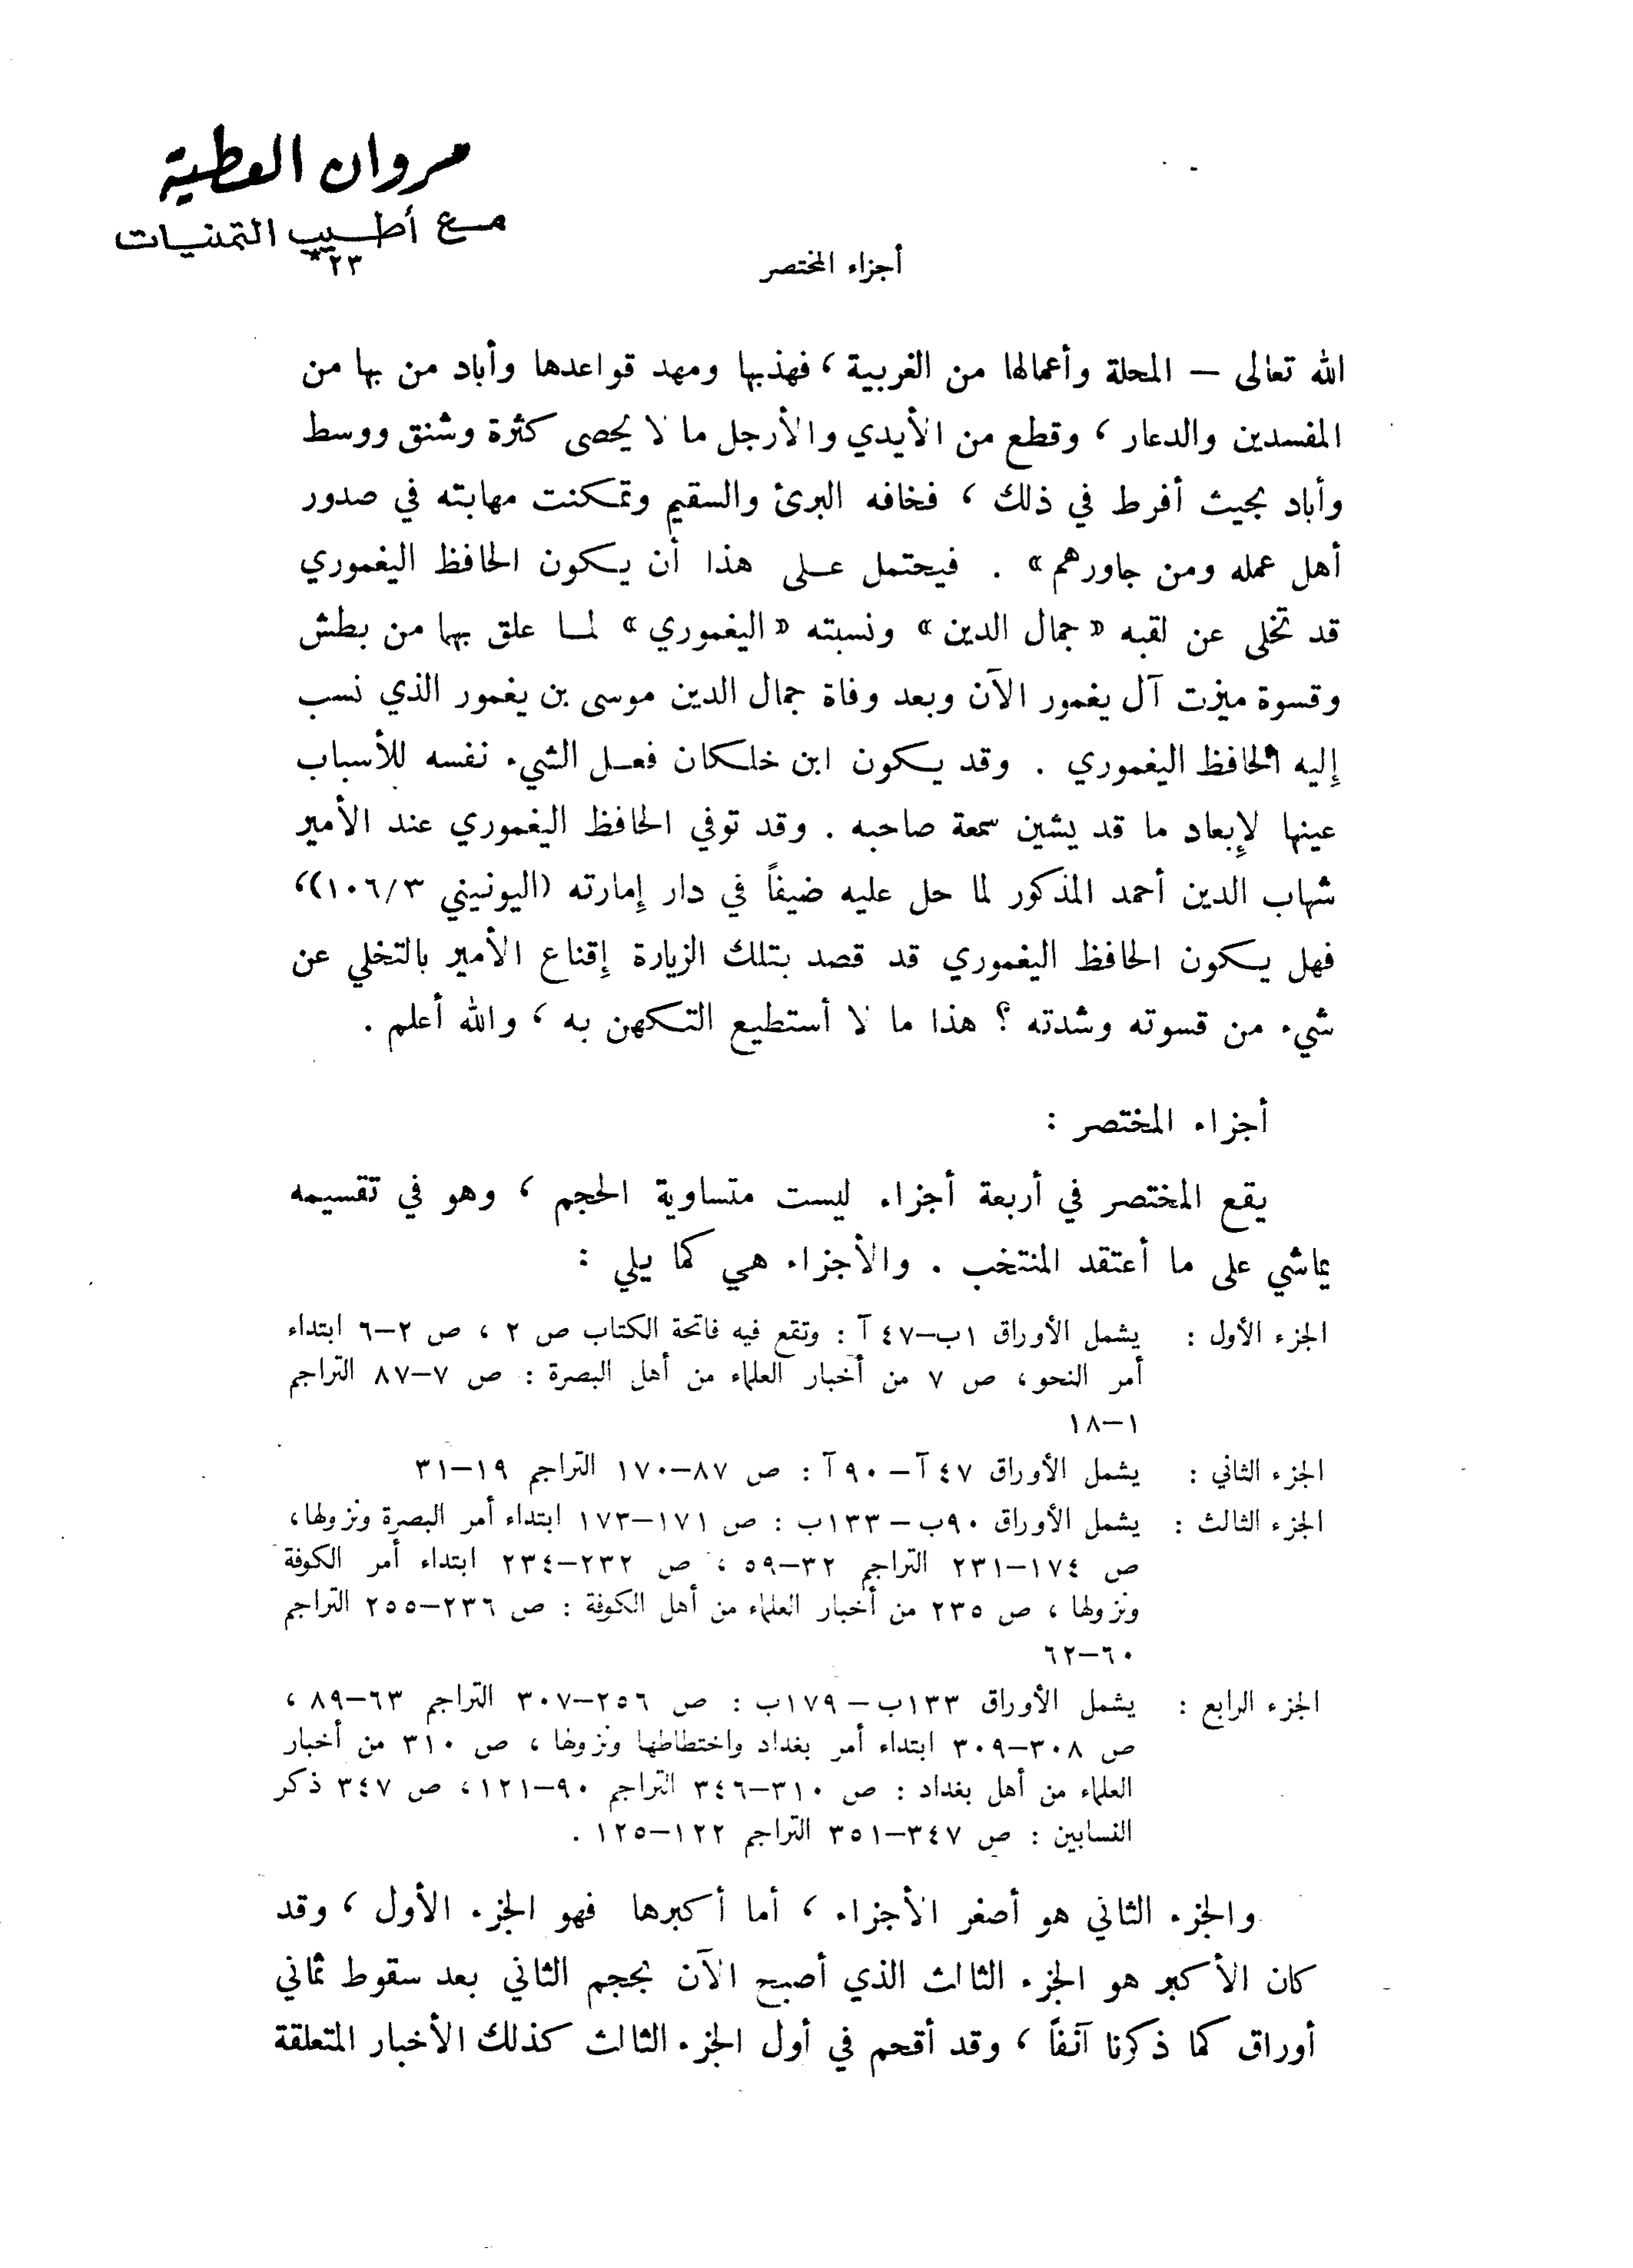 مروان العطية
مع أطيب التمنيات
أجزاء المختصر
٢٣*
الله تعالى – المحلة وأعمالها من الغربية ، فهذبها ومهد قواعدها وأباد من بها من
المفسدين والدعار ، وقطع من الأيدي والأرجل ما لا يحصى كثرة وشنق ووسط
وأباد بحيث أفرط في ذلك ، فخافه البرئ والسقيم وتمكنت مهابته في صدور
أهل عمله ومن جاورهم » . فيحتمل على هذا أن يكون الحافظ اليغموري
قد تخلى عن لقبه « جمال الدين » ونسبته « اليغموري » لما علق بهما من بطش
وقسوة ميزت آل يغمور الآن وبعد وفاة جمال الدين موسى بن يغمور الذي نسب
إليه الحافظ اليغموري . وقد يكون ابن خلكان فعل الشيء نفسه للأسباب
عينها لإبعاد ما قد يشين سمعة صاحبه . وقد توفي الحافظ اليغموري عند الأمير
شهاب الدين أحمد المذكور لما حل عليه ضيفاً في دار إمارته (اليونيني ١٠٦/٣)،
فهل يكون الحافظ اليغموري قد قصد بتلك الزيارة إقناع الأمير بالتخلي عن
شيء من قسوته وشدته ؟ هذا ما لا أستطيع التكهن به ، والله أعلم .
أجزاء المختصر :
يقع المختصر في أربعة أجزاء ليست متساوية الحجم ، وهو في تقسيمه
يماشي على ما أعتقد المنتخب . والأجزاء هي كما يلي :
الجزء الأول : يشمل الأوراق ١ب–٤٧آ : وتقع فيه فاتحة الكتاب ص ٢ ، ص ٢–٦ ابتداء
أمر النحو، ص ٧ من أخبار العلماء من أهل البصرة : ص ٧–٨٧ التراجم
١–١٨
الجزء الثاني : يشمل الأوراق ٤٧آ – ٩٠آ : ص ٨٧–١٧٠ التراجم ١٩–٣١
الجزء الثالث : يشمل الأوراق ٩٠ب – ١٣٣ب : ص ١٧١–١٧٣ ابتداء أمر البصرة ونزولها،
ص ١٧٤–٢٣١ التراجم ٣٢–٥٩ ، ص ٢٣٢–٢٣٤ ابتداء أمر الكوفة
ونزولها ، ص ٢٣٥ من أخبار العلماء من أهل الكوفة : ص ٢٣٦–٢٥٥ التراجم
٦٠–٦٢
الجزء الرابع : يشمل الأوراق ١٣٣ب – ١٧٩ب : ص ٢٥٦–٣٠٧ التراجم ٦٣–٨٩ ،
ص ٣٠٨–٣٠٩ ابتداء أمر بغداد واختطاطها ونزولها ، ص ٣١٠ من أخبار
العلماء من أهل بغداد : ص ٣١٠–٣٤٦ التراجم ٩٠–١٢١، ص ٣٤٧ ذكر
النسابين : ص ٣٤٧–٣٥١ التراجم ١٢٢–١٢٥ .
والجزء الثاني هو أصغر الأجزاء ، أما أكبرها فهو الجزء الأول ، وقد
كان الأكبر هو الجزء الثالث الذي أصبح الآن بحجم الثاني بعد سقوط ثماني
أوراق كما ذكرنا آنفاً ، وقد أقحم في أول الجزء الثالث كذلك الأخبار المتعلقة